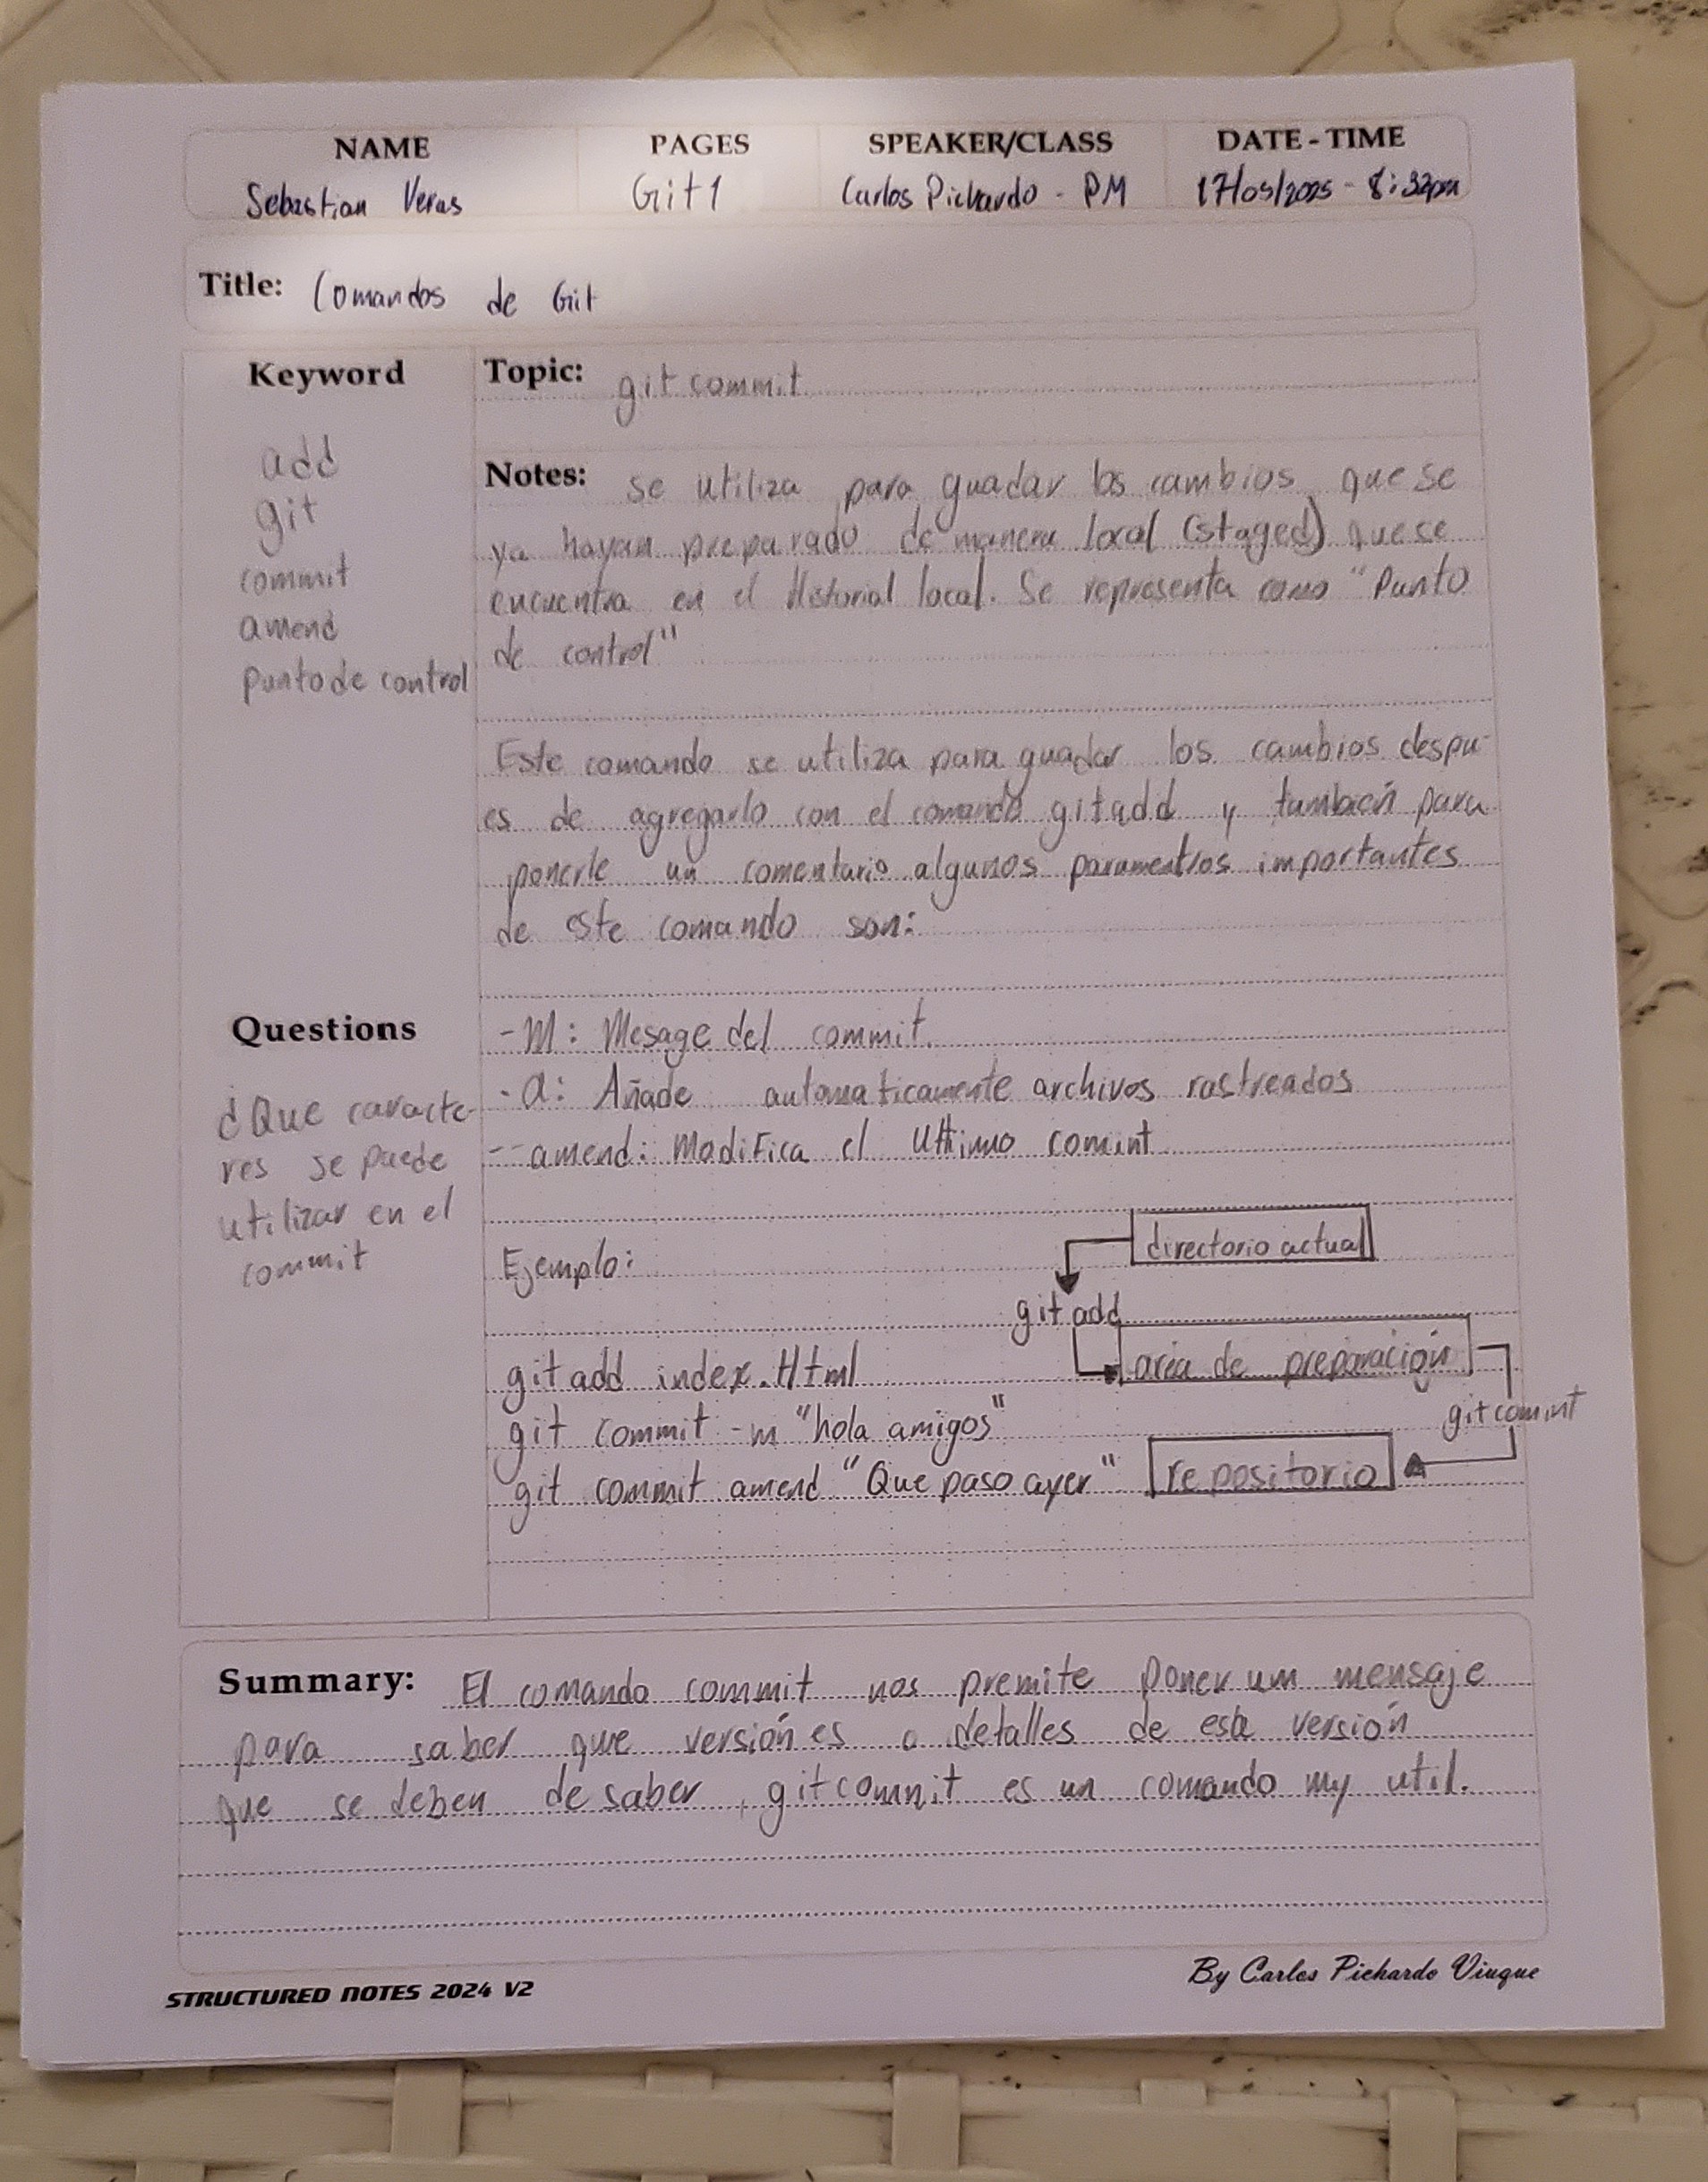 NAME PAGES SPEAKER/CLASS DATE-TIME
Sebastian Veras Git1 Carlos Pichardo - PM 17/05/2025 - 8:32pm
Title: Comandos de Git
Keyword
add
git
commit
amend
punto de control
Topic: git commit
Notes: se utiliza para guadar los cambios que se
ya hayan preparado de manera local (staged) que se
encuentra en el Historial local. Se representa como "Punto
de control"
Este comando se utiliza para guadar los cambios despu-
es de agregarlo con el comando git add y también para
ponerle un comentario algunos paramentros importantes
de este comando son:
-M: Mesage del commit.
-a: Añade automaticamente archivos rastreados
--amend: Modifica el Ultimo commit
Questions
¿Que caracte-
res se puede
utilizar en el
commit
Ejemplo:
git add index.Html
git commit -m "hola amigos"
git commit amend "Que paso ayer"
directorio actual
git add
area de preparación
git commit
repositorio
Summary: El comando commit nos premite poner um mensaje
para saber que versión es o detalles de esta versión
que se deben de saber, git commit es un comando my util.
STRUCTURED NOTES 2024 V2
By Carlos Pichardo Viuque